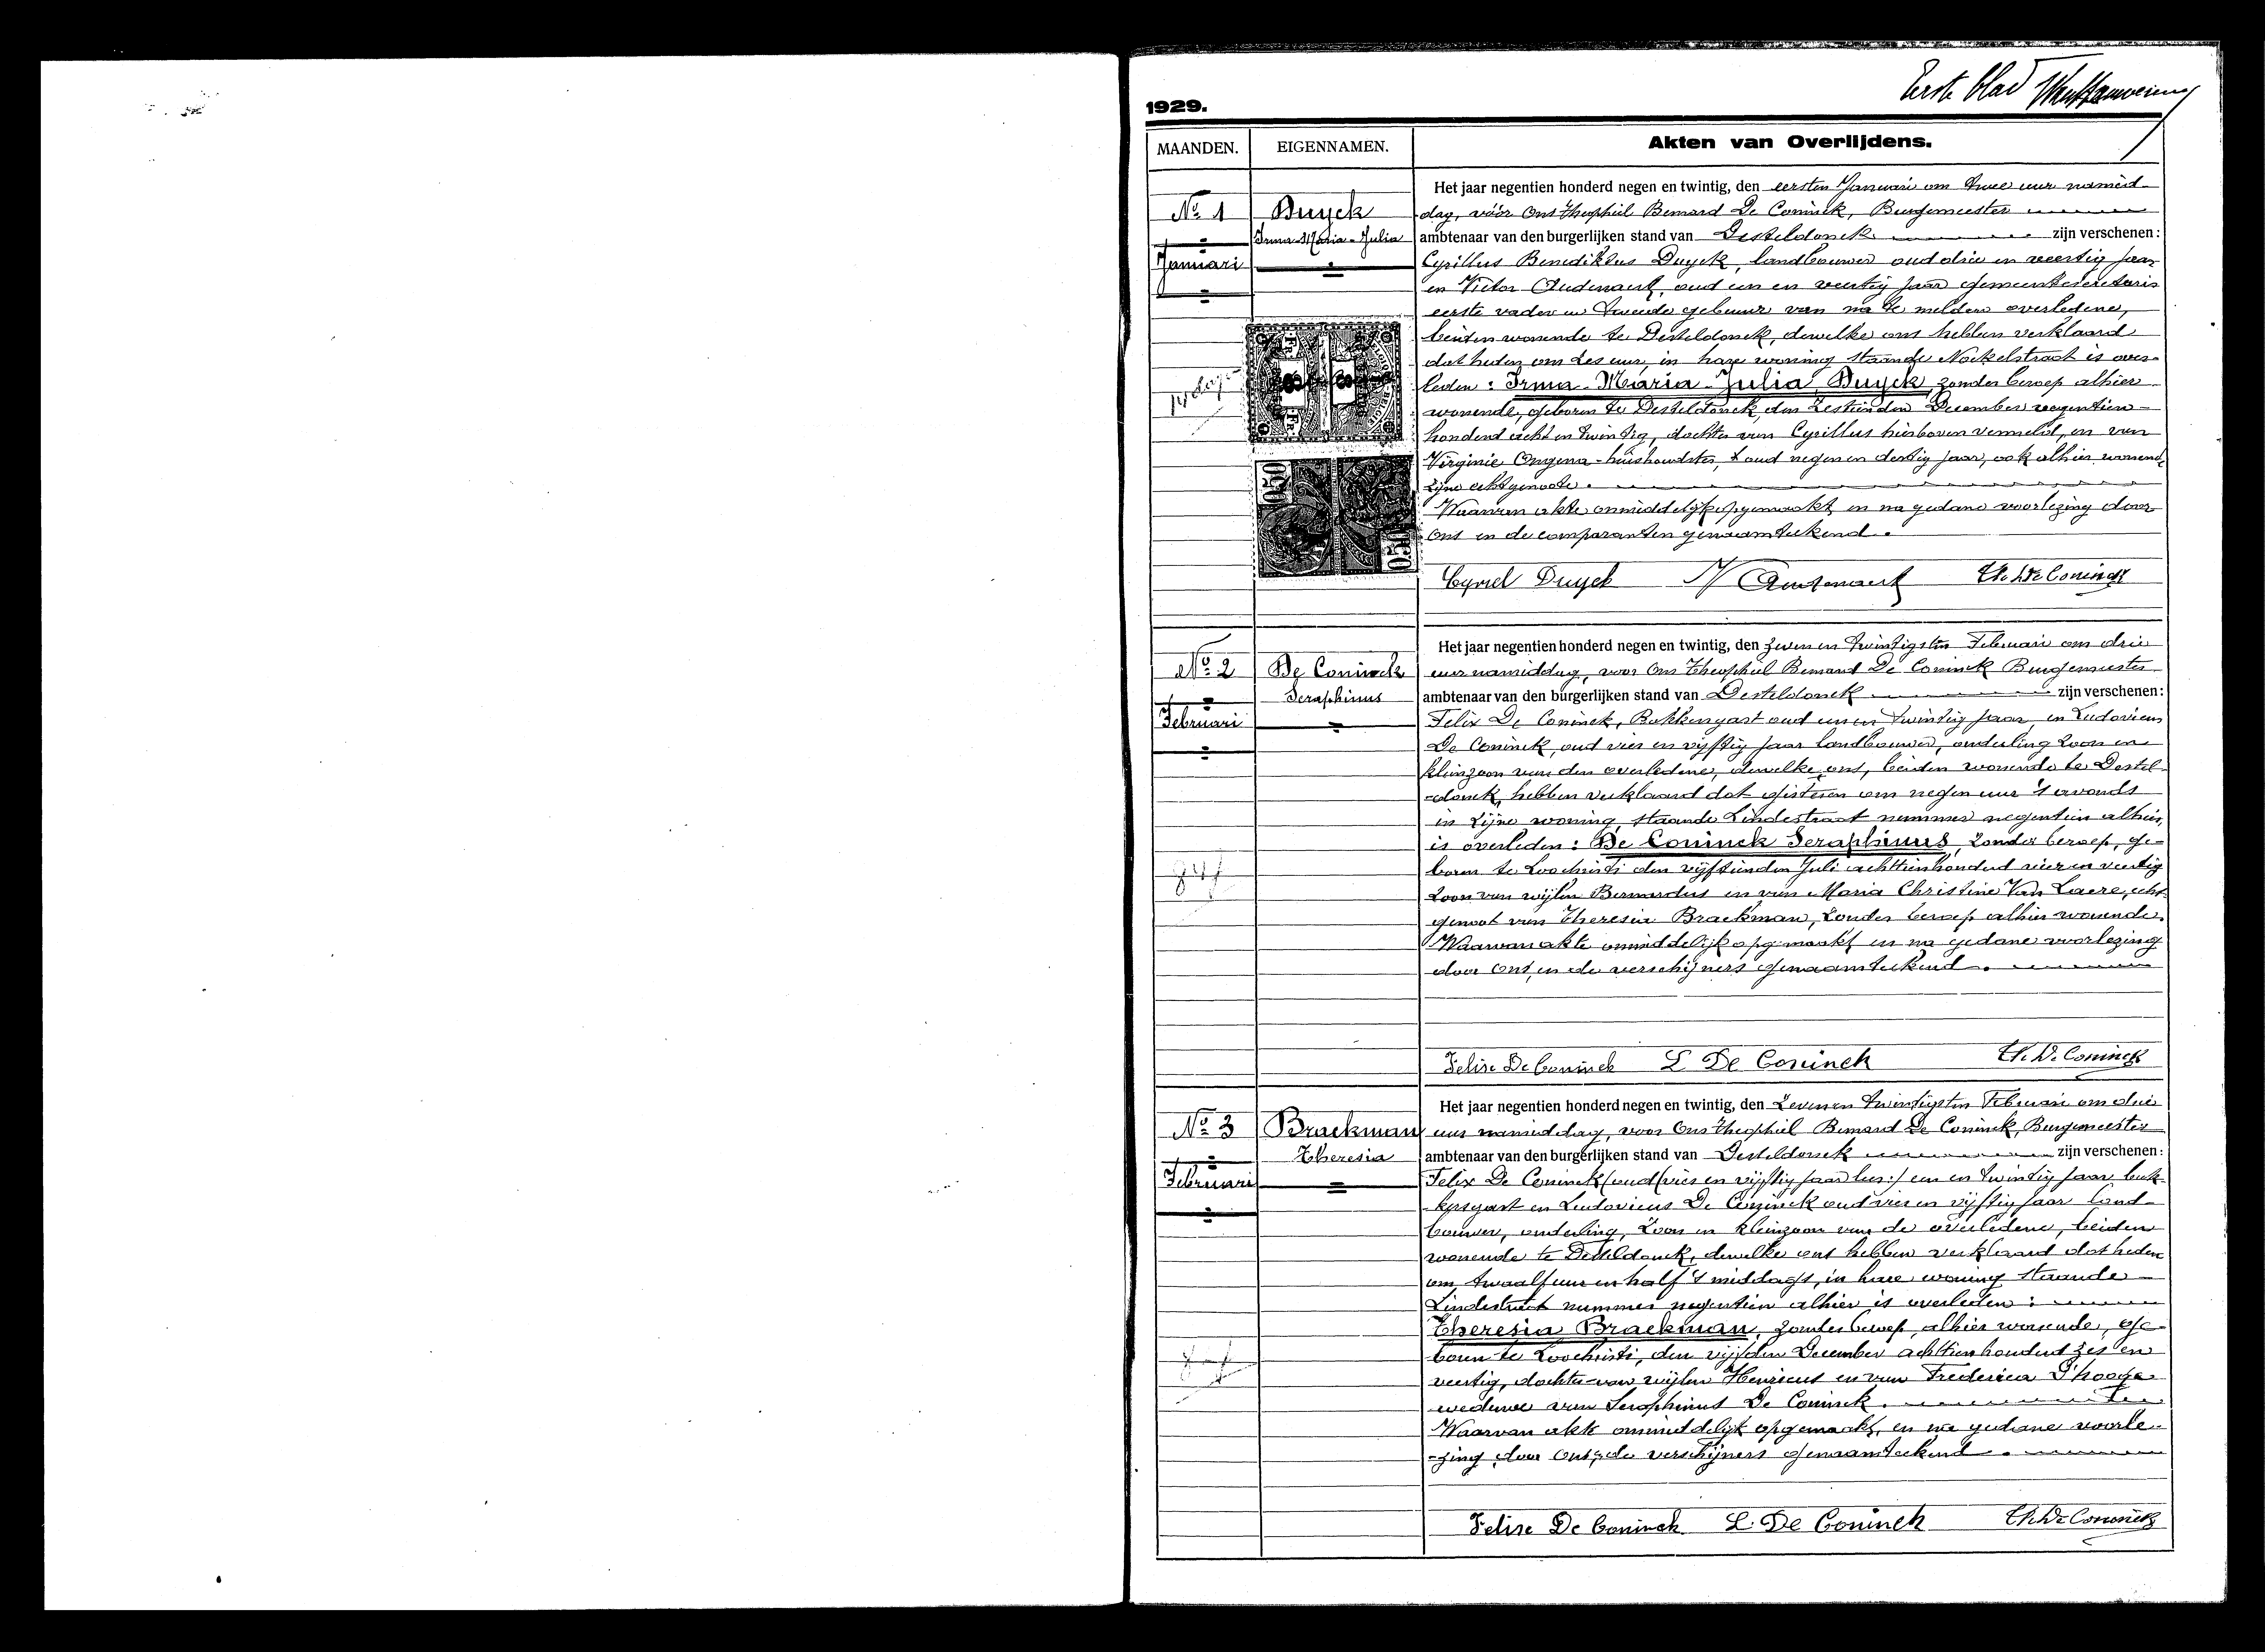 Eerste blad
1929.
MAANDEN. EIGENNAMEN. Akten van Overlijdens.
Het jaar negentien honderd negen en twintig, den eersten Januari om twee uur namid-
No 1 Duyck dag, vóór Ons Theophiel Bernard De Coninck, Burgemeester
Irma-Maria-Julia ambtenaar van den burgerlijken stand van Desteldonck zijn verschenen:
Januari Cyrillus Benediktus Duyck, landbouwer oud drie en veertig jaar
en Victor Audenaert, oud een en veertig jaar gemeentesecretaris
eerste vader en tweede gebuur van na te melden overledene,
beiden wonende te Desteldonck, dewelke ons hebben verklaard
dat heden om zes uur, in hare woning staande is over-
14 dag
leden: Irma-Maria-Julia Duyck, zonder beroep alhier
wonende, geboren te Desteldonck, den zestienden December negentien-
honderd acht en twintig, dochter van Cyrillus hierboven vermeld, en van
Virginie Ongena-huishoudster, oud negen en dertig jaar, ook alhier wonend,
zijne echtgenoote.
Waarvan akte onmiddelijk opgemaakt, en na gedane voorlezing door
Ons en de comparanten genaamteekend.
Cyriel Duyck V Audenaert Th. De Coninck
Het jaar negentien honderd negen en twintig, den zeven en twintigsten Februari om drie
No 2 De Coninck uur namiddag, voor Ons Theophiel Bernard De Coninck Burgemeester
Seraphinus ambtenaar van den burgerlijken stand van Desteldonck zijn verschenen:
Februari Felix De Coninck, Bakkersgast oud een en twintig jaar, en Ludovicus
De Coninck, oud vier en vijftig jaar landbouwer, onderling zoon en
kleinzoon van den overledene, dewelke ons, beiden wonende te Destel-
-donck, hebben verklaard dat gisteren om negen uur 's avonds
in zijne woning, staande Lindestraat nummer negentien alhier,
is overleden: De Coninck Seraphinus, zonder beroep, ge-
boren te Loochristi den vijftienden Juli achttienhonderd vier en veertig
84 j
zoon van wijlen Bernardus en van Maria Christine Van Laere, echt-
genoot van Theresia Braekman, zonder beroep alhier wonende.
Waarvan akte onmiddelijk opgemaakt en na gedane voorlezing
door Ons, en de verschijners genaamteekend.
Felix De Coninck L De Coninck Th. De Coninck
Het jaar negentien honderd negen en twintig, den zeven en twintigsten Februari om drie
No 3 Braekman uur namiddag, voor Ons Theophiel Bernard De Coninck, Burgemeester
Theresia ambtenaar van den burgerlijken stand van Desteldonck zijn verschenen:
Februari Felix De Coninck (oud (vier en vijftig jaar lees:) een en twintig jaar, bak-
kersgast en Ludovicus De Coninck oud vier en vijftig jaar land-
bouwer, onderling, zoon en kleinzoon van de overledene, beiden
wonende te Desteldonck, dewelke ons hebben verklaard dat heden
om twaalf uur en half 's middags, in hare woning staande
Lindestraat nummer negentien alhier is overleden:
Theresia Braekman, zonder beroep, alhier wonende, ge-
boren te Loochristi, den vijfden December achttienhonderd zes en
veertig, dochter van wijlen Henricus en van Frederica D'hooge
weduwe van Seraphinus De Coninck.
Waarvan akte onmiddelijk opgemaakt, en na gedane voorle-
-zing door Ons, de verschijners genaamteekend.
Felix De Coninck L. De Coninck Th. De Coninck